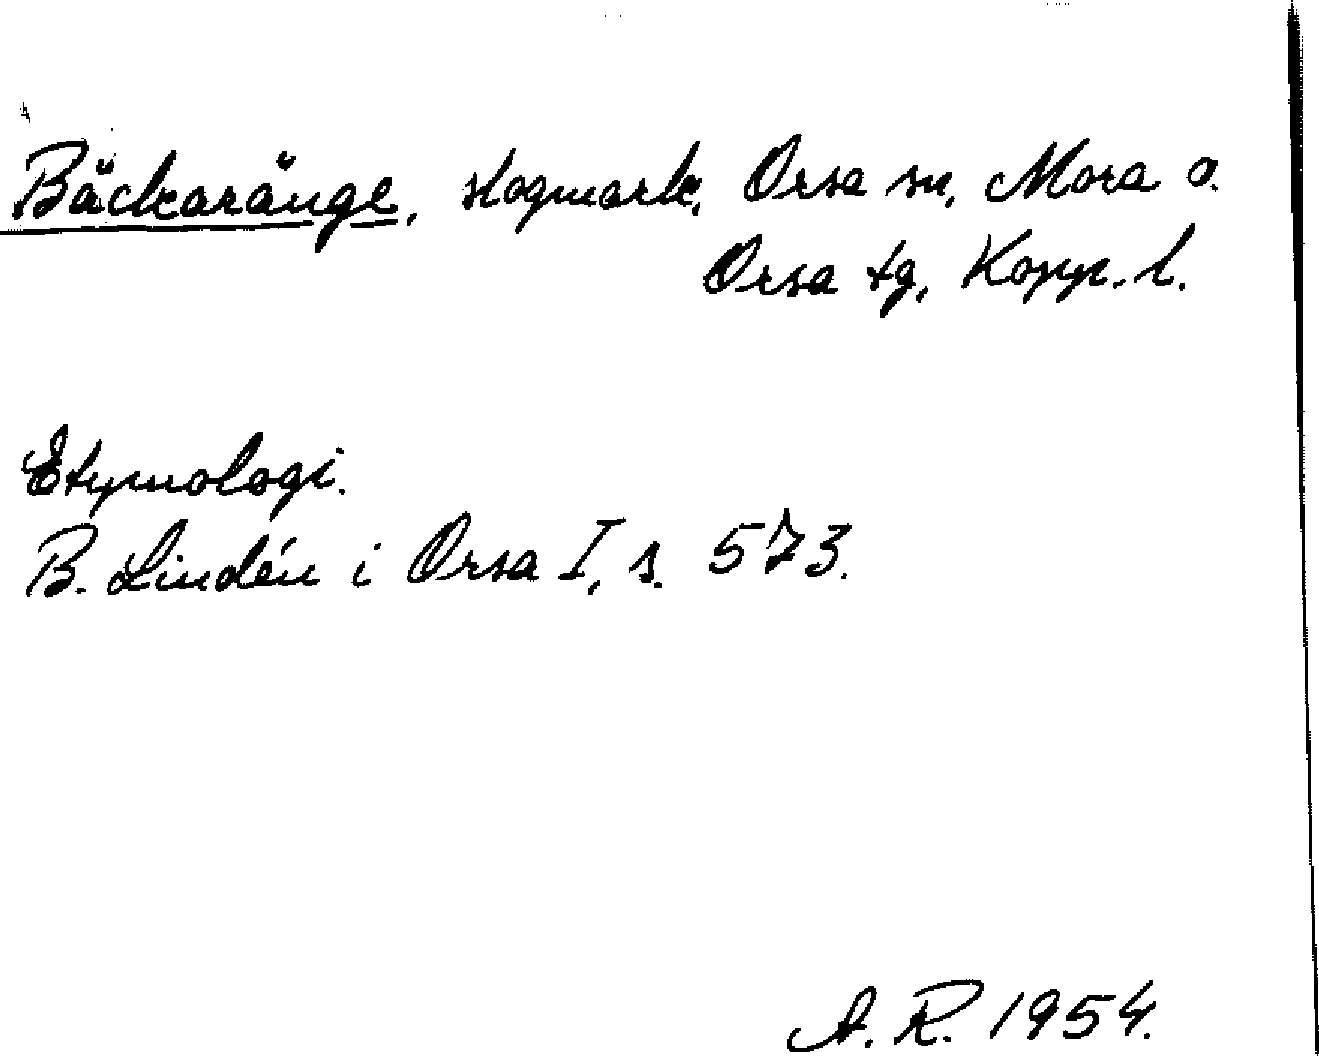 Bäckaränge, skogmark, Orsa sn, Mora o.
Orsa tg, Kopp. l.
Etymologi.
B. Lindén i Orsa I, s. 573.
A. R. 1954.